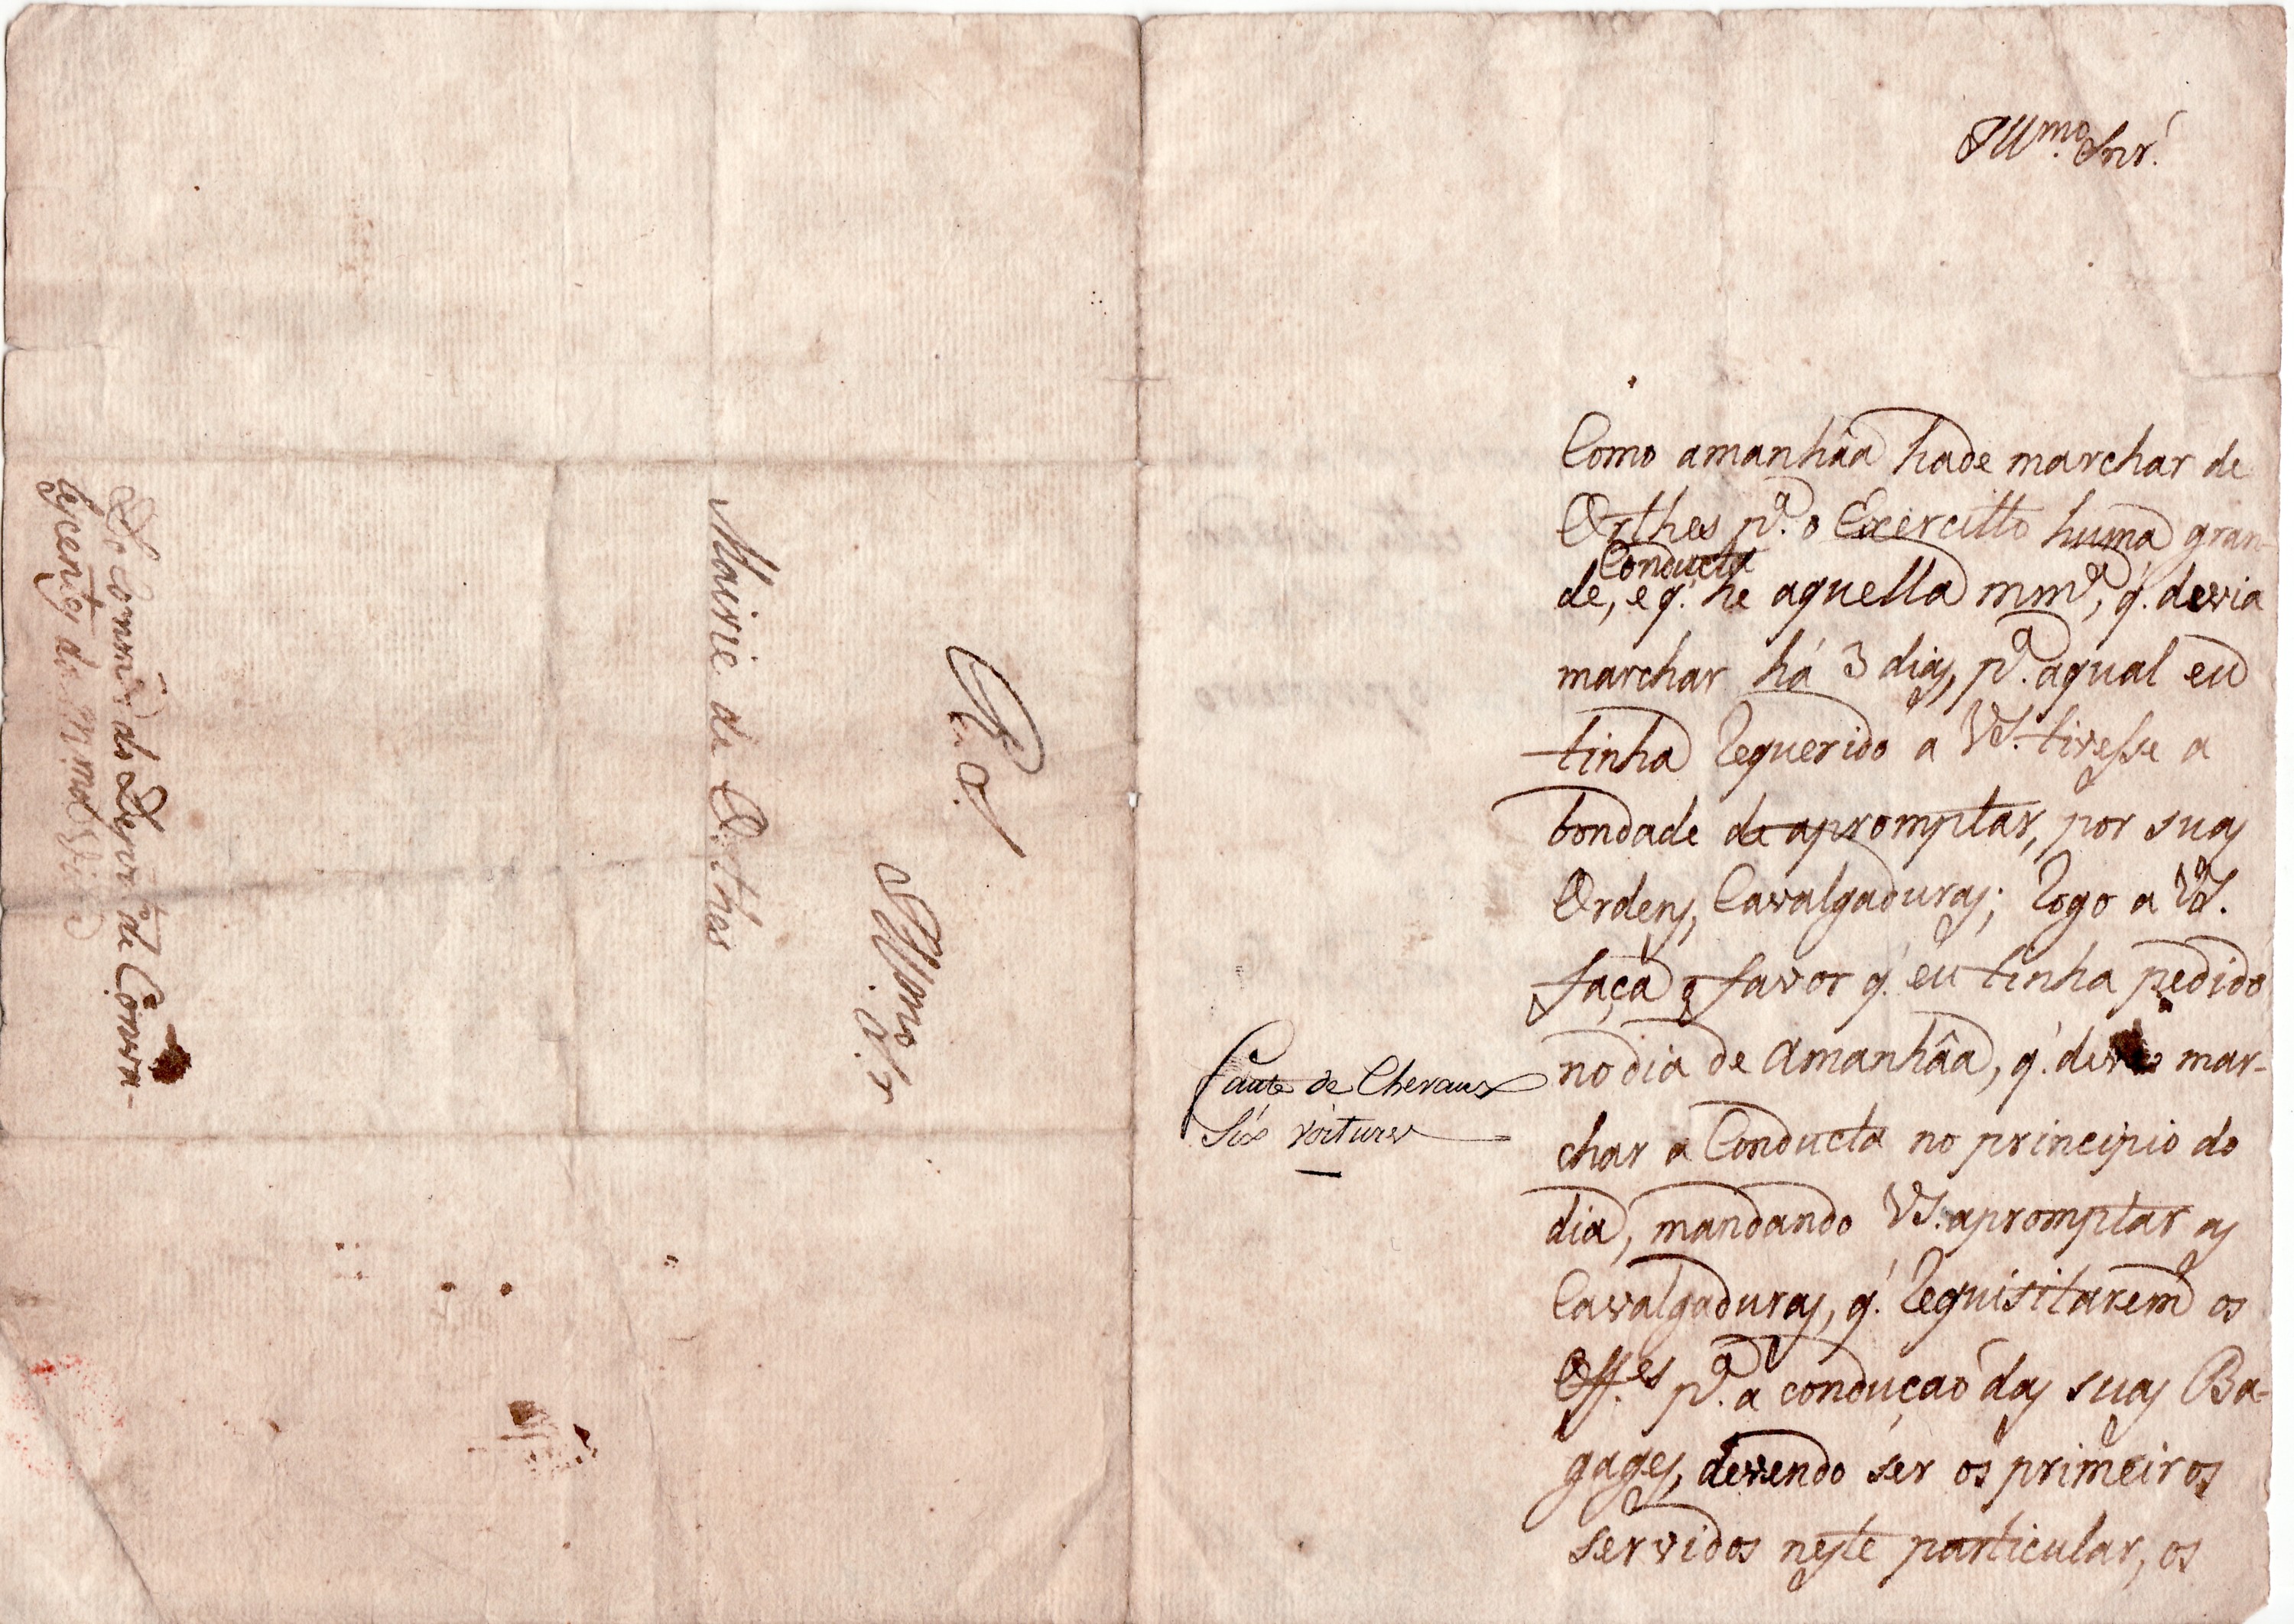 Illmo. Snr.
Como amanhâa hade marchar de
Orthes pa. o Exercitto huma gran-
Conducta
de, e q. he aquella mma, q. devia
marchar há 3 dias, pa. aqual eu
tinha Requerido a VS. tivesse a
bondade de apromptar, por suas
Ordens, Cavalgaduras; Rogo a VS.
faça o favor q. eu tinha pedido
no dia de Amanhâa, q. deve mar-
char a Conducta no principio do
dia, mandando VS. apromptar as
Cavalgaduras, q. Requisitarem os
Offes. pa. a conduçaõ das suas Ba-
gages, devendo ser os primeiros
servidos neste particular, os
faute de Chevaux
Six voitures
Illmo. Sr.
Mairie de Orthes
Do Comme. do Deposto. de Conva-
lecentes de